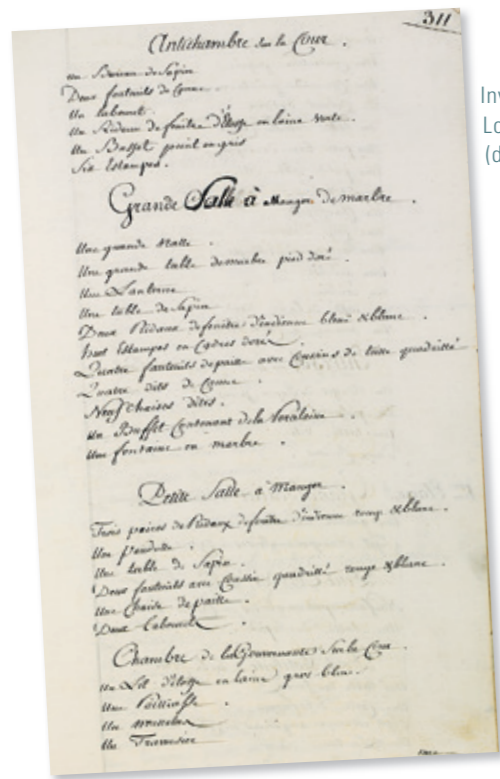 311
Antichambre sur la Cour.
un Bureau de Sapin
Deux fauteuils de Canne
Un tabouret
Un Rideau de fenêtre d'Étoffe en laine verte.
Un Buffet peint en gris
Six Estampes.
Grande Salle à Manger de marbre.
Une grande Natte.
Une grande table de marbre pied doré.
Une Lanterne
Une table de Sapin
Deux Rideaux de fenêtre d'indienne bleue & blanc.
huit Estampes en Cadres dorés.
Quatre fauteuils de paille avec Coussins de toile quadrillé
Quatre dits de Canne.
Neuf Chaises dites.
un Buffet Contenant de la Porcelaine.
Une fontaine en marbre.
Petite Salle à Manger.
Trois paires de Rideaux de fenêtre d'indienne rouge & blanc.
Une Pendule.
Une table de Sapin.
Deux fauteuils avec Coussin quadrillé rouge & blanc.
Une Chaise de paille.
Deux tabourets.
Chambre de la Gouvernante Sur la Cour.
un Lit d'étoffe en laine gros bleu.
Une Paillasse.
Un Matelas
Un Traversin
Inv
Lo
(d